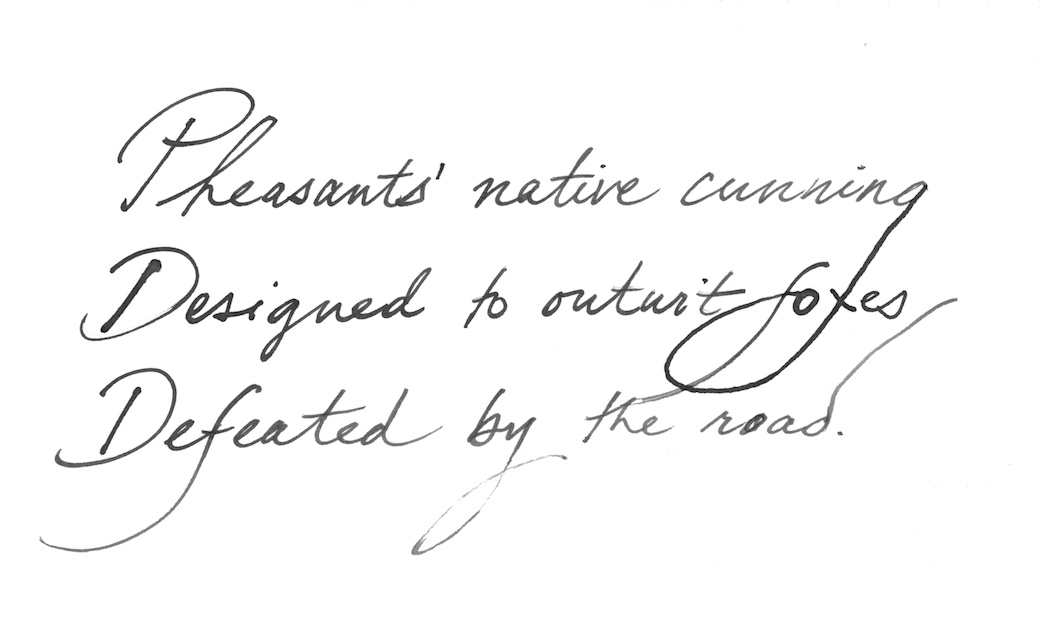 Pheasants' native cunning
Designed to outwit foxes
Defeated by the road.